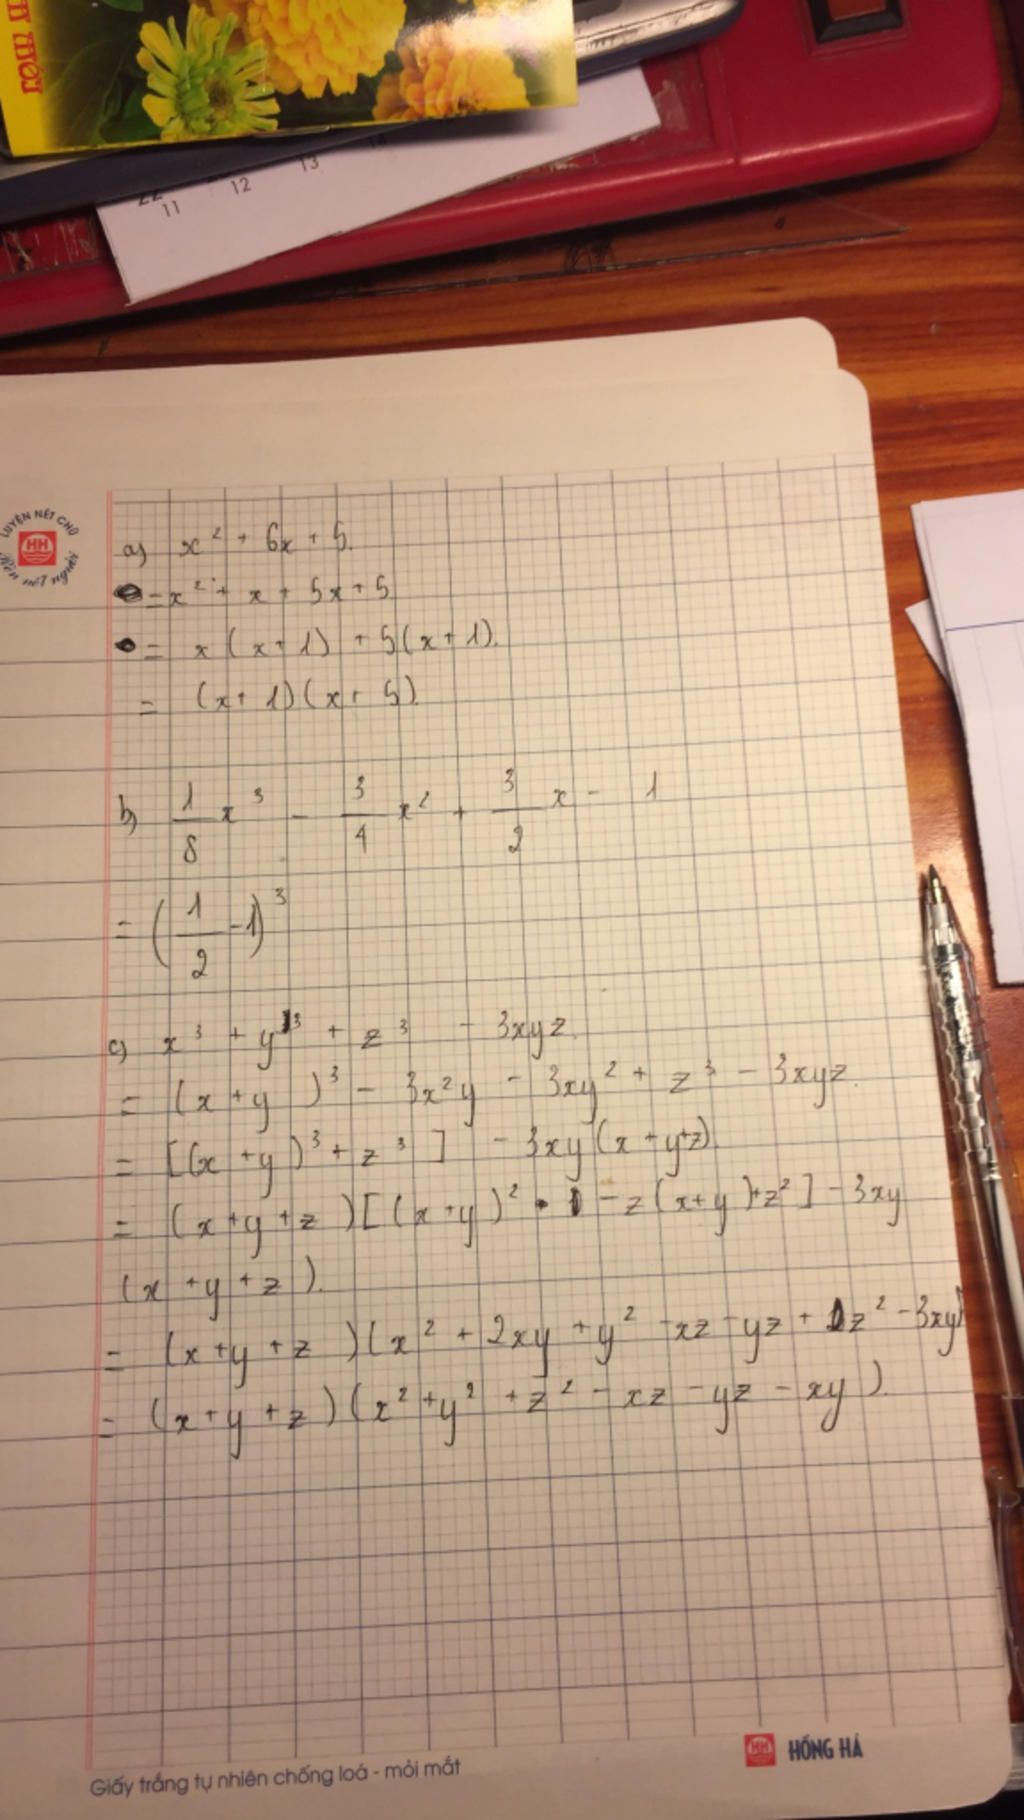 22
11
12
13
14
LUYỆN NÉT CHỮ
HH
Rèn nết người
a) x² + 6x + 5.
= x² + x + 5x + 5
= x (x + 1) + 5(x + 1).
= (x + 1)(x + 5)
b) 1/8 x³ - 3/4 x² + 3/2 x - 1
= (1/2 - 1)³
c) x³ + y³ + z³ - 3xyz.
= (x + y)³ - 3x²y - 3xy² + z³ - 3xyz.
= [(x + y)³ + z³] - 3xy(x + y+z)
= (x + y + z)[(x + y)² - z(x+y)+z²] - 3xy
(x + y + z).
= (x + y + z)(x² + 2xy + y² - xz - yz + z² - 3xy)
= (x + y + z)(x² + y² + z² - xz - yz - xy).
HH HỒNG HÀ
Giấy trắng tự nhiên chống loá - mỏi mắt